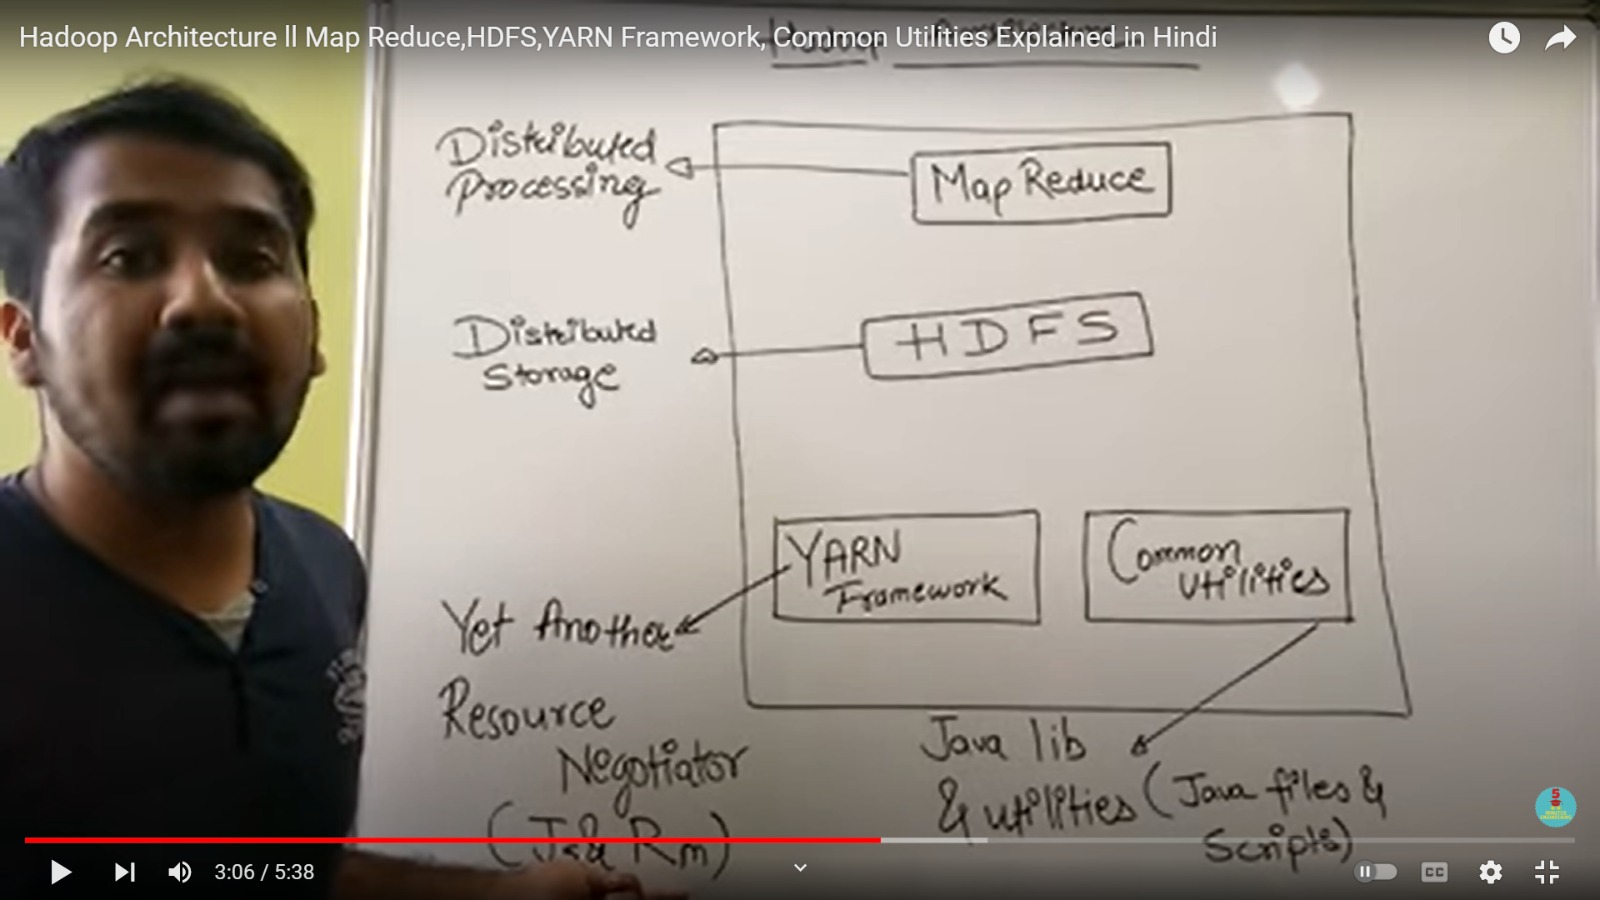 Hadoop Architecture ll Map Reduce,HDFS,YARN Framework, Common Utilities Explained in Hindi
Distributed
Processing
Map Reduce
Distributed
Storage
HDFS
YARN
Framework
Common
Utilities
Yet Another
Resource
Negotiator
(JS& Rm)
Java lib
& utilities (Java files &
Scripts)
5
3:06 / 5:38
CC